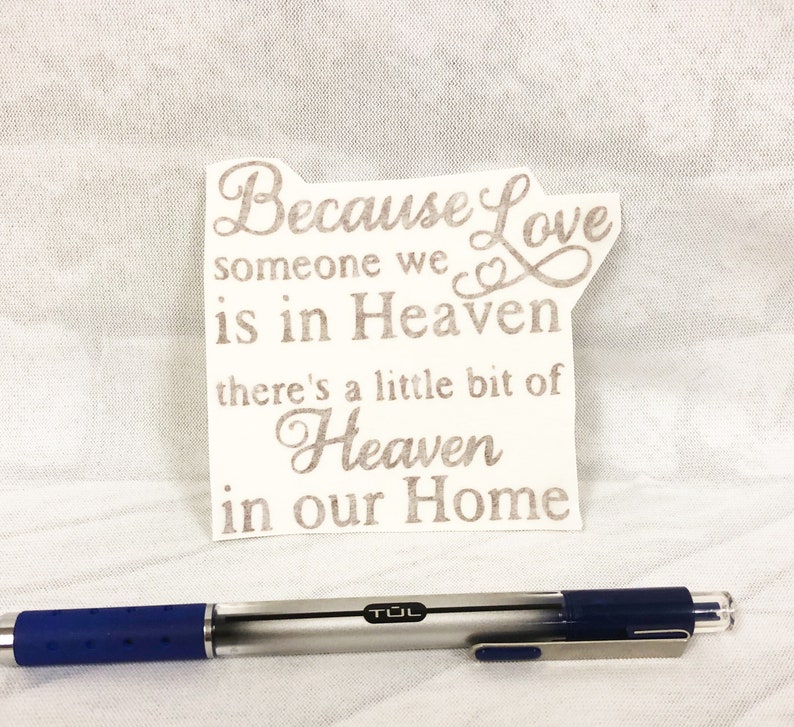 Because
someone we Love
is in Heaven
there's a little bit of
Heaven
in our Home
TÚL